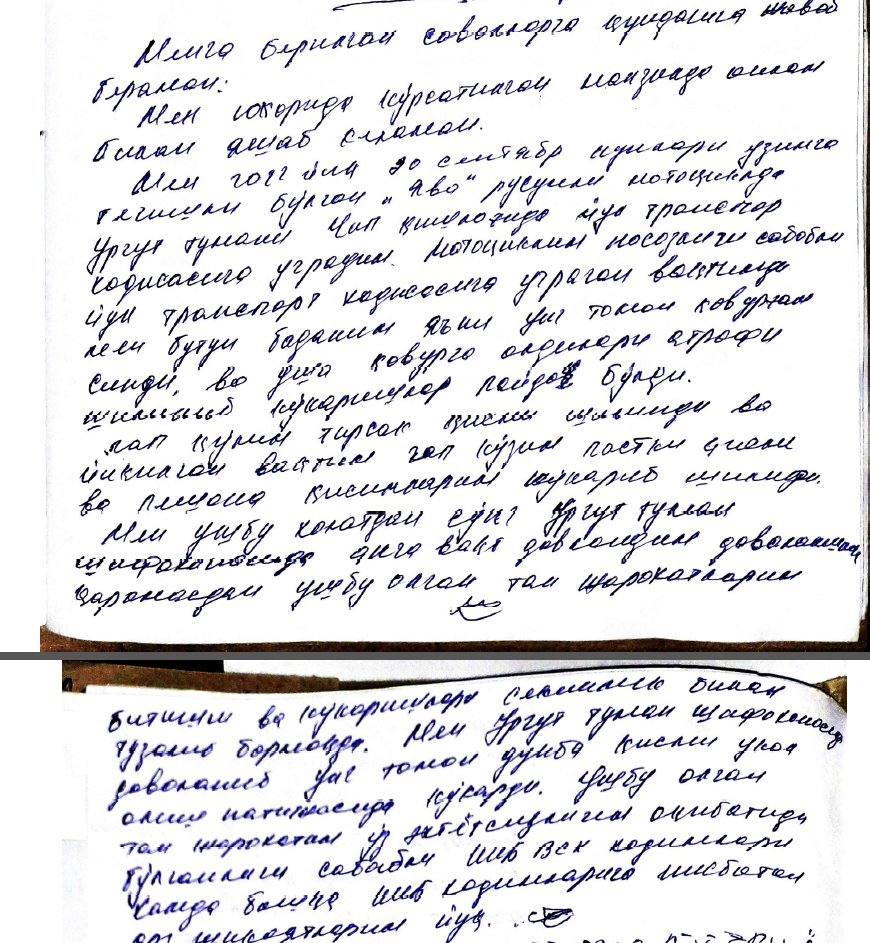 Менга берилган саволларга қуйидагича жавоб
бераман:
Мен юкорида кўрсатилган манзилда оилам
билан яшаб келаман.
Мен йил 20 сентябр кунлари узимга
тегишли бўлган „Ява" русумли мотоциклда
Ургут тумани қишлоғида йул транспор
ходисасига учрадим. Мотоциклим носозлиги сабабли
йул транспорт ходисасига учраган вактимда
мен бутун баданим яъни унг томон ковургам
синди, ва уша ковурга олдинлари атрофи
шилиниб кўкаришлар пайдо бўлди.
чап қўлим тирсак қисми шилинди ва
йикилган вактим чап кўзим пастки
ва пешона қисимларим кукариб шилинди.
Мен ушбу холатдан сўнг Ургут туман
шифохонасида анча вакт даволандим даволанишим
қарамасдан ушбу олган тан жарохатларим
битиши ва кукаришлари секинлик билан
тузалиб бормокда. Мен Ургут туман шифохонасида
даволаниб унг томон думба қисми укол
олиш натижасида кўкарди. Ушбу олган
тан жарохатам ўз эхтётсизлигим оқибатида
бўлганлиги сабабли ИИБ ВСК ходимлари
хамда бошқа ИИБ ходимларига нисбатан
арз шикоятларим йуқ.